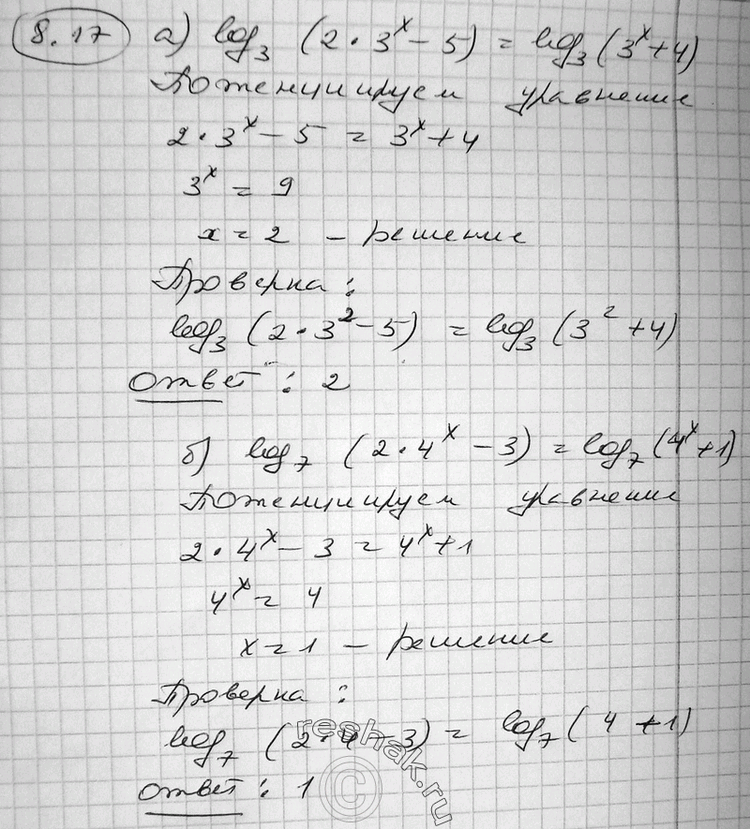 8.17 а) log₃ (2·3ˣ - 5) = log₃ (3ˣ + 4)
Потенциируем уравнение
2·3ˣ - 5 = 3ˣ + 4
3ˣ = 9
x = 2 - решение
Проверка:
log₃ (2·3² - 5) = log₃ (3² + 4)
Ответ: 2
б) log₇ (2·4ˣ - 3) = log₇ (4ˣ + 1)
Потенциируем уравнение
2·4ˣ - 3 = 4ˣ + 1
4ˣ = 4
x = 1 - решение
Проверка:
log₇ (2·4 - 3) = log₇ (4 + 1)
Ответ: 1
© reshak.ru